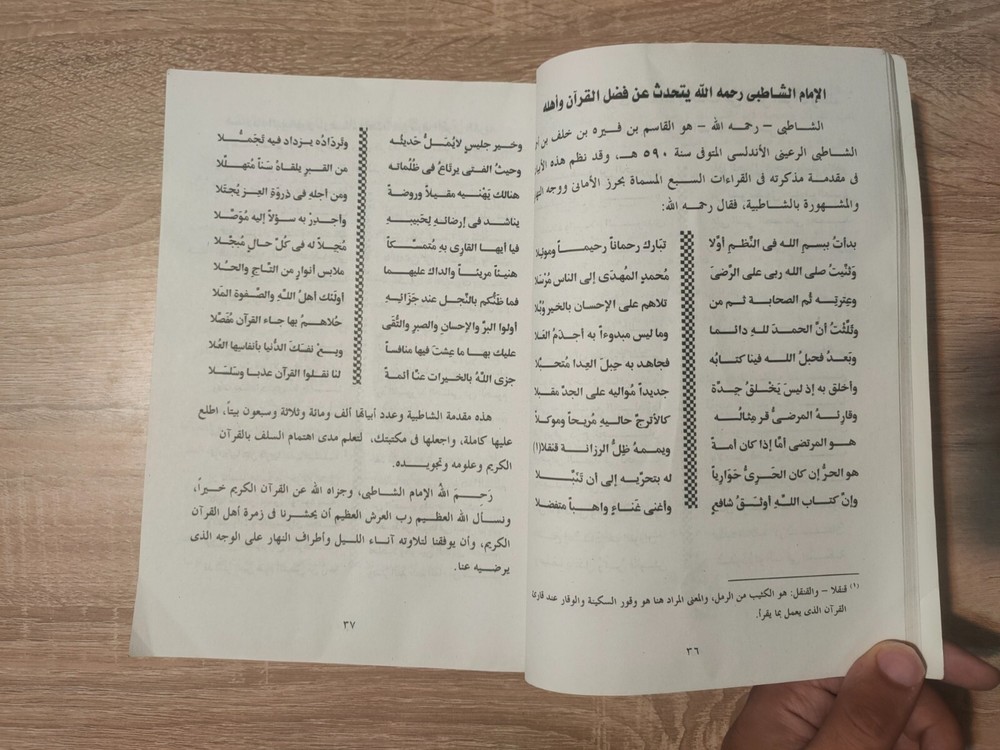 الإمام الشاطبى رحمه الله يتحدث عن فضل القرآن وأهله
الشاطبى – رحمه الله – هو القاسم بن فيره بن خلف بن
الشاطبى الرعينى الأندلسى المتوفى سنة ٥٩٠ هـ، وقد نظم هذه
فى مقدمة مذكرته فى القراءات السبع المسماة بحرز الأمانى ووجه
والمشهورة بالشاطبية، فقال رحمه الله:
بدأتُ ببسمِ الله فى النَّظمِ أوَّلا تبارك رحماناً رحيماً وموئِلا
وثَنَّيتُ صلى الله ربى على الرِّضىَ مُحمدٍ المُهدَى إلى الناس مُرْسَلا
وعِترتِه ثُم الصحابة ثم من تلاهم على الإحسان بالخير وُبَّلا
وثَلَّثْتُ أنَّ الحمدَ للهِ دائما وما ليس مبدوءاً به أجذمُ العَلا
وبَعدُ فحبلُ الله فينا كتابُه فجاهد به حِبلَ العِدا مُتحبِّلا
وأخلق به إذ ليسَ يَخْلقُ جِدَّة جديداً مُواليه على الجدِّ مقبلا
وقارِئهُ المرضىُّ قر مِثالُه كالأترجّ حاليهِ مُرِيحاً وموكلا
هو المرتضى أمًّا إذا كان أمةً ويممهُ ظِلُّ الرزانة قنقلا(١)
هو الحرُّ إن كان الحَرِىُّ حَوَارِياً له بتحرِّيه إلى أن تَنَبَّلا
وإنَّ كتاب اللهِ أوثقُ شافعٍ وأغنى غَناءٍ واهباً متفضلا
(١) قنقلا – والقنقل: هو الكثيب من الرمل، والمعنى المراد هنا هو وقور السكينة والوقار عند قارئ
القرآن الذى يعمل بما يقرأ.
٣٦
وخير جليسٍ لايُمَلُّ حَديثُه وتردَادُه يزداد فيه تَجَمُّلا
وحيثُ الفتى يرتَاعُ فى ظُلُماته من القبرِ يلقاهُ سَناً مُتهلِّلا
هنالك يَهْنيه مقيلاً وروضةً ومن أجله فى ذروَةِ العِز يُجتلَا
يناشد فى إرضائه لحَبيبِه وأجدِرْ به سؤلاً إليه مُوَصَّلا
فيا أيها القارِى بهِ مُتمسِّكاً مُجلاًّ له فى كُلِّ حالٍ مُبجِّلا
هنيئاً مريئاً والداك عليهما ملابس أنوارٍ من التَّاجِ والحُلا
فما ظَنُّكم بالنَّجل عند جَزَائِهِ أولئك أهلُ اللهِ والصَّفوة المَلا
أولوا البرِّ والإحسان والصبر والتُّقَى حُلاهمُ بها جاء القرآن مُفَصَّلا
عليك بها ما عِشتَ فيها منافساً وبِعْ نفسَكَ الدُّنيا بأنفاسِها العُلا
جزى اللهُ بالخيرات عنَّا أئمةً لنا نقلوا القرآن عذبا وسَلسَلا
هذه مقدمة الشاطبية وعدد أبياتها ألف ومائة وثلاثة وسبعون بيتاً، اطلع
عليها كاملة، واجعلها فى مكتبتك، لتعلم مدى اهتمام السلف بالقرآن
الكريم وعلومه وتجويده.
رَحِمَ اللهُ الإمام الشاطبى، وجزاه الله عن القرآن الكريم خيراً،
ونسأل الله العظيم رب العرش العظيم أن يحشرنا فى زمرة أهل القرآن
الكريم، وأن يوفقنا لتلاوته آناء الليل وأطراف النهار على الوجه الذى
يرضيه عنا.
٣٧